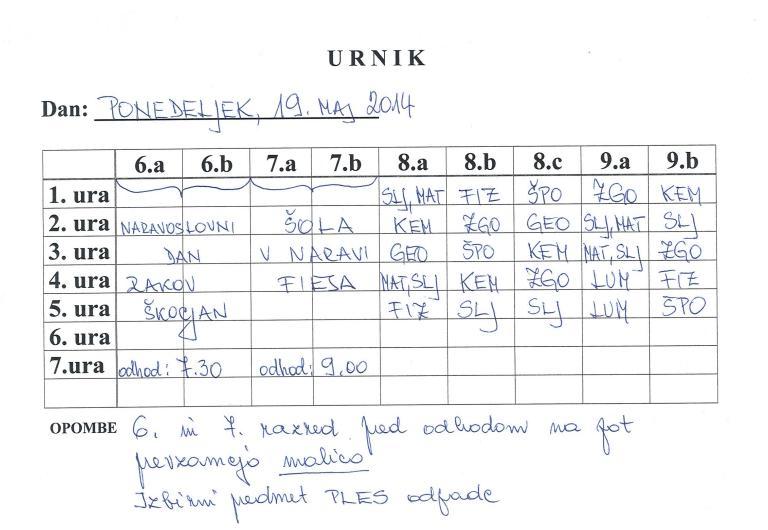 URNIK
Dan: PONEDELJEK, 19. MAJ 2014
6.a 6.b 7.a 7.b 8.a 8.b 8.c 9.a 9.b
1. ura SLJ, MAT FIZ ŠPO ZGO KEM
2. ura NARAVOSLOVNI ŠOLA KEM ZGO GEO SLJ, MAT SLJ
3. ura DAN V NARAVI GEO ŠPO KEM MAT, SLJ ZGO
4. ura RAKOV FIESA MAT, SLJ KEM ZGO LUM FIZ
5. ura ŠKOCJAN FIZ SLJ SLJ LUM ŠPO
6. ura
7.ura odhod: 7.30 odhod: 9.00
OPOMBE 6. in 7. razred pred odhodom na pot
prevzamejo malico
Izbirni predmet PLES odpade